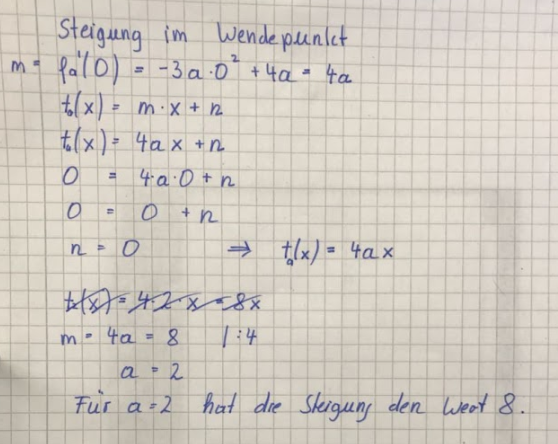 Steigung im Wendepunkt
m = fa'(0) = -3a·0² + 4a = 4a
ta(x) = m·x + n
ta(x) = 4ax + n
0 = 4·a·0 + n
0 = 0 + n
n = 0 ⇒ ta(x) = 4ax
t2(x) = 4·2·x = 8x
m = 4a = 8 |:4
a = 2
Für a=2 hat die Steigung den Wert 8.